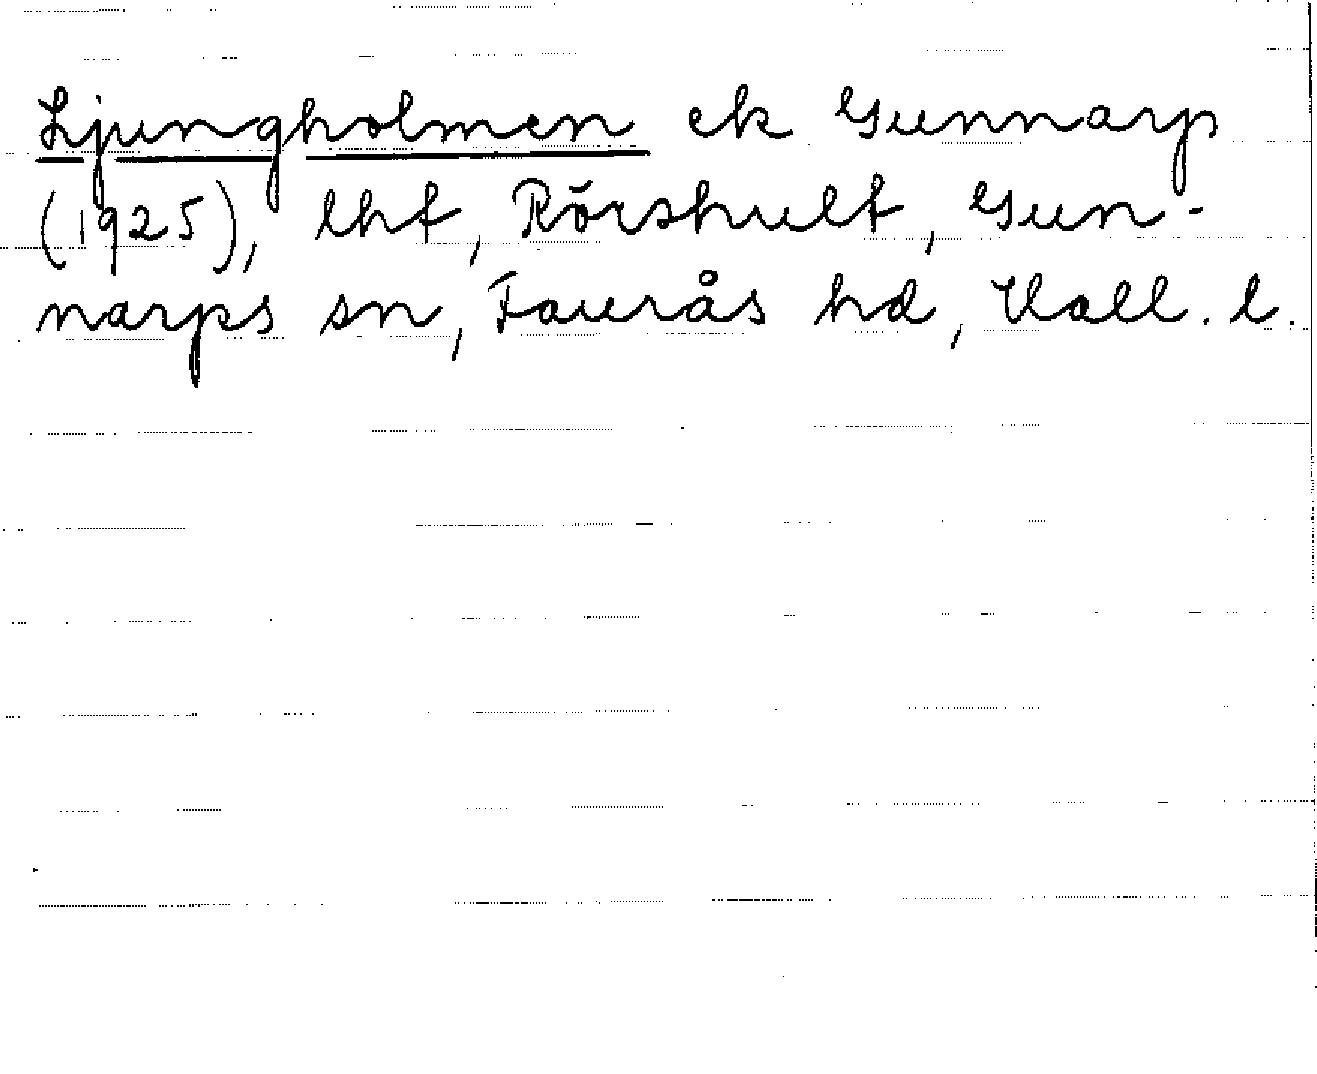 Ljungholmen ek Gunnarp
(1925), lht, Rörshult, Gun-
narps sn, Faurås hd, Hall. l.